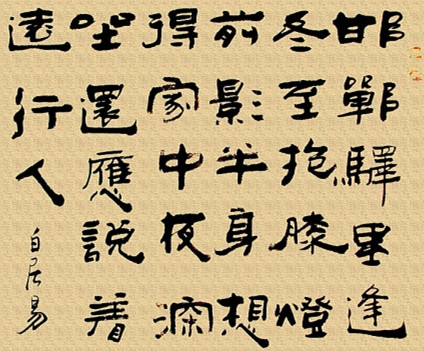 邯鄲驛里逢
冬至抱膝燈
前影半身想
得家中夜深
坐還應說著
遠行人
白居易